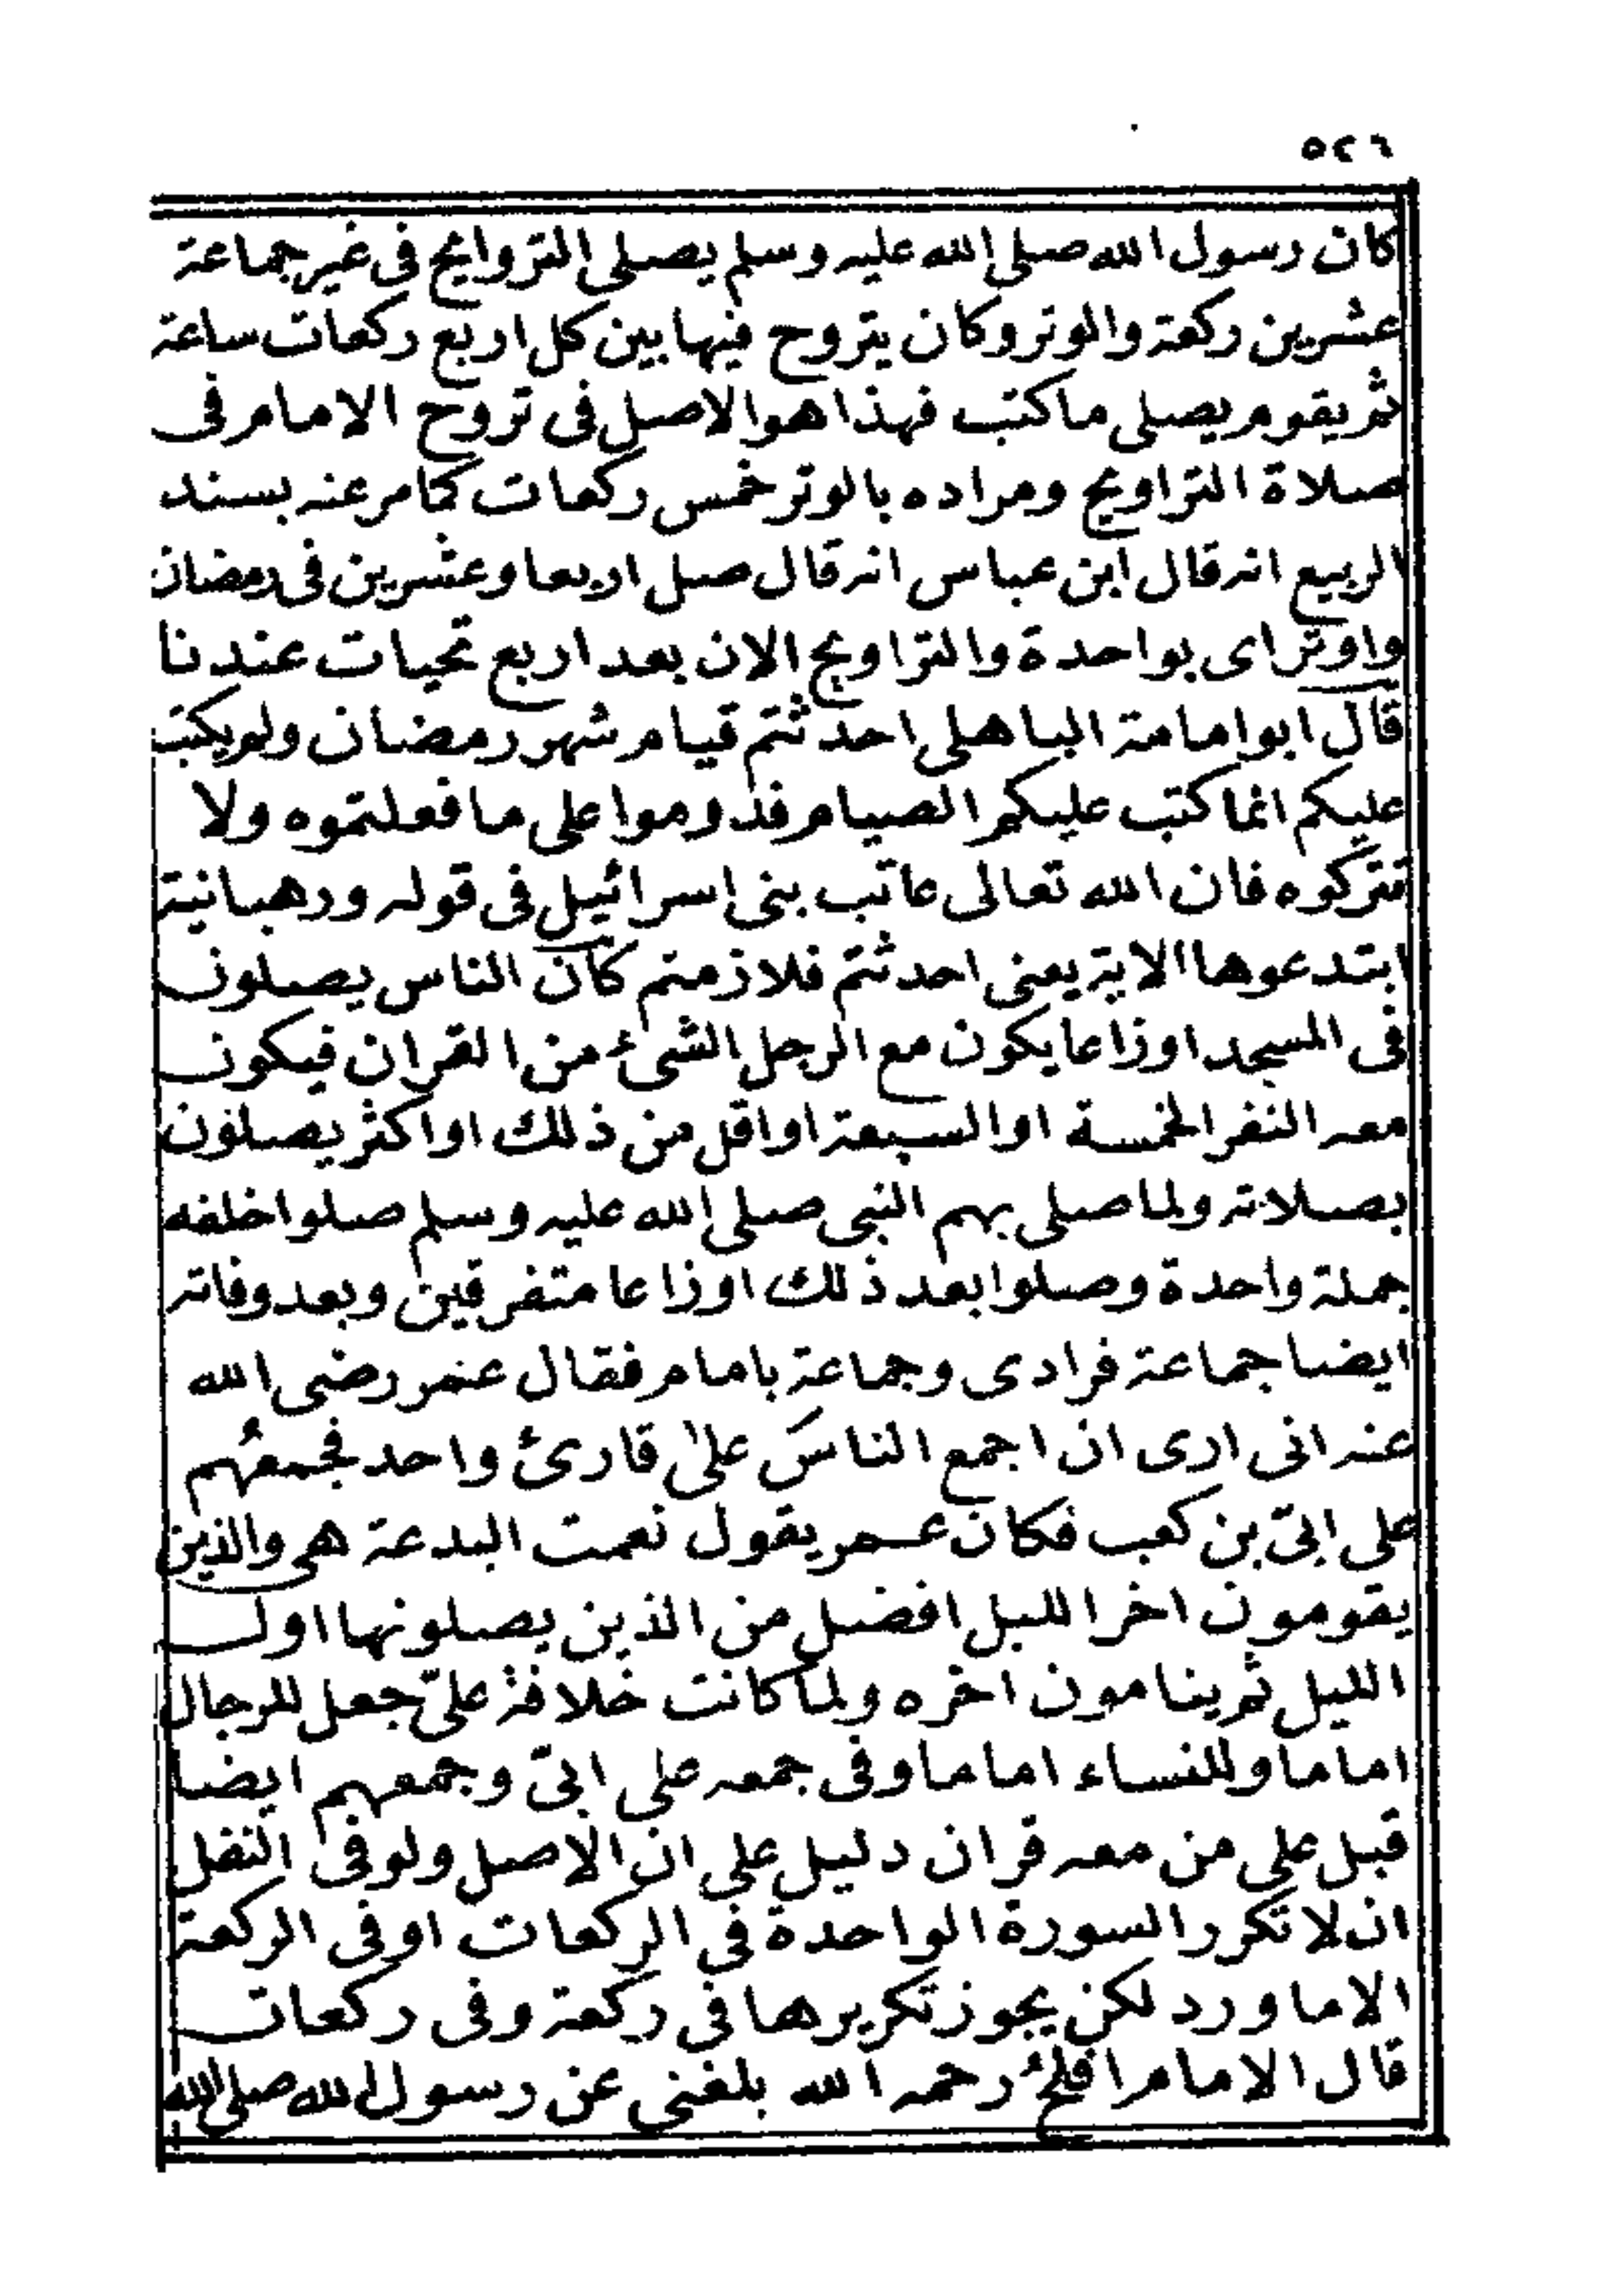 ٥٢٦
كان رسول الله صلى الله عليه وسلم يصلى التروايح فى غير جماعة
عشرين ركعة والوتر وكان يتروح فيها بين كل اربع ركعات ساعة
ثم يقوم يصلى ما كتب فهذا هو الاصل فى تروح الامام فى
صلاة التراويح ومراده بالوتر خمس ركعات كما مر عنه بسند
الربيع انه قال ابن عباس انه قال صل اربعا وعشرين فى رمضان
واوتر اى بواحدة والتراويح الان بعد اربع تحيات عندنا
قال ابو امامة الباهلى احدثتم قيام شهر رمضان ولم يكتب
عليكم انما كتب عليكم الصيام فدوموا على ما فعلتموه ولا
تتركوه فان الله تعالى عاتب بنى اسرائيل فى قوله ورهبانية
ابتدعوها الاية يعنى احدثتم فلازمتم كان الناس يصلون
فى المسجد اوزاعا يكون مع الرجل الشىء من القران فيكون
معه النفر الخمسة او السبعة او اقل من ذلك او اكثر يصلون
بصلاته ولما صلى بهم النبى صلى الله عليه وسلم صلوا خلفه
جملة واحدة وصلوا بعد ذلك اوزاعا متفرقين وبعد وفاته
ايضا جماعة فرادى وجماعة بامام فقال عمر رضى الله
عنه انى ارى ان اجمع الناسَ على قارئ واحد فجمعُهم
على ابىّ بن كعب فكان عمر يقول نعمت البدعة هى والذين
يقومون اخر الليل افضل من الذين يصلونها اول
الليل ثم ينامون اخره ولما كانت خلافة علىّ جعل للرجال
اماما وللنساء اماما وفى جمعه على ابىّ وجمعهم ايضا
قبل على من معه قران دليل على ان الاصل ولو فى النفل
ان لا تكرر السورة الواحدة فى الركعات او فى الركعة
الا ما ورد لكن يجوز تكريرها فى ركعة وفى ركعات
قال الامام افلحُ رحمه الله بلغنى عن رسول الله صلى الله